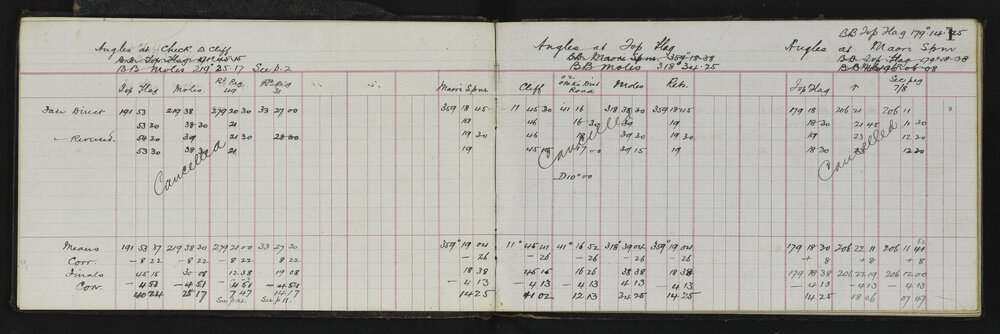 Angles at Check △ Cliff
B.B. Top Flag 191° 45-15
B B Moles 219° 25-17 See p. 2
Top Flag Moles. Rd Peg 249 Rd Peg 31 Maori Spur
Face Direct 191 53 219 38 279 20 30 33 27 00 359 18 45
53 30 38 30 21 19
Reversed. 54 30 39 21 30 28 00 19 30
53 30 38 30 21 19
Cancelled
Means 191 53 37 219 38 30 279 21 00 33 27 30 359° 19 04
Corr. - 8 22 - 8 22 - 8 22 8 22 - 26
Finals 45 15 30 08 12 38 19 08 18 38
Corr. - 4 51 - 4 51 - 4 51 - 4 51 - 4 13
40 24 25 17 7 47 14 17 14 25
See p 12. See p 11.
Angles at Top Flag
B.B. Maori Spur. 359° 18-38
B B Moles 318° 34-25
Cliff Road Moles Retn.
11 45 30 41 16 318 38 30 359 18 45
46 16 30 39 19
46 18 39 30 19 30
45 15 17 00 39 15 19
Cancelled
D10° 00
11° 45 41 41° 16 52 318° 39 04 359° 19 04
- 26 - 26 - 26 - 26
45 15 16 26 38 38 18 38
- 4 13 - 4 13 - 4 13 - 4 13
41 02 12 13 34 25 14 25
BB Top Flag 179° 14-25
1
Angles at Maori Spur
B.B. Top Flag 179° 18-38
See peg
Top Flag ↑ 7/8
179 18 206 21 206 11 "
18 30 21 45 11 30
19 23 12 30
18 30 23 12 30
Cancelled
179 18 30 206 22 11 206 11 52
+ 8 + 8 + 8
179 18 38 206 22 19 206 12 00
- 4 13 - 4 13 - 4 13
14 25 18 06 07 47